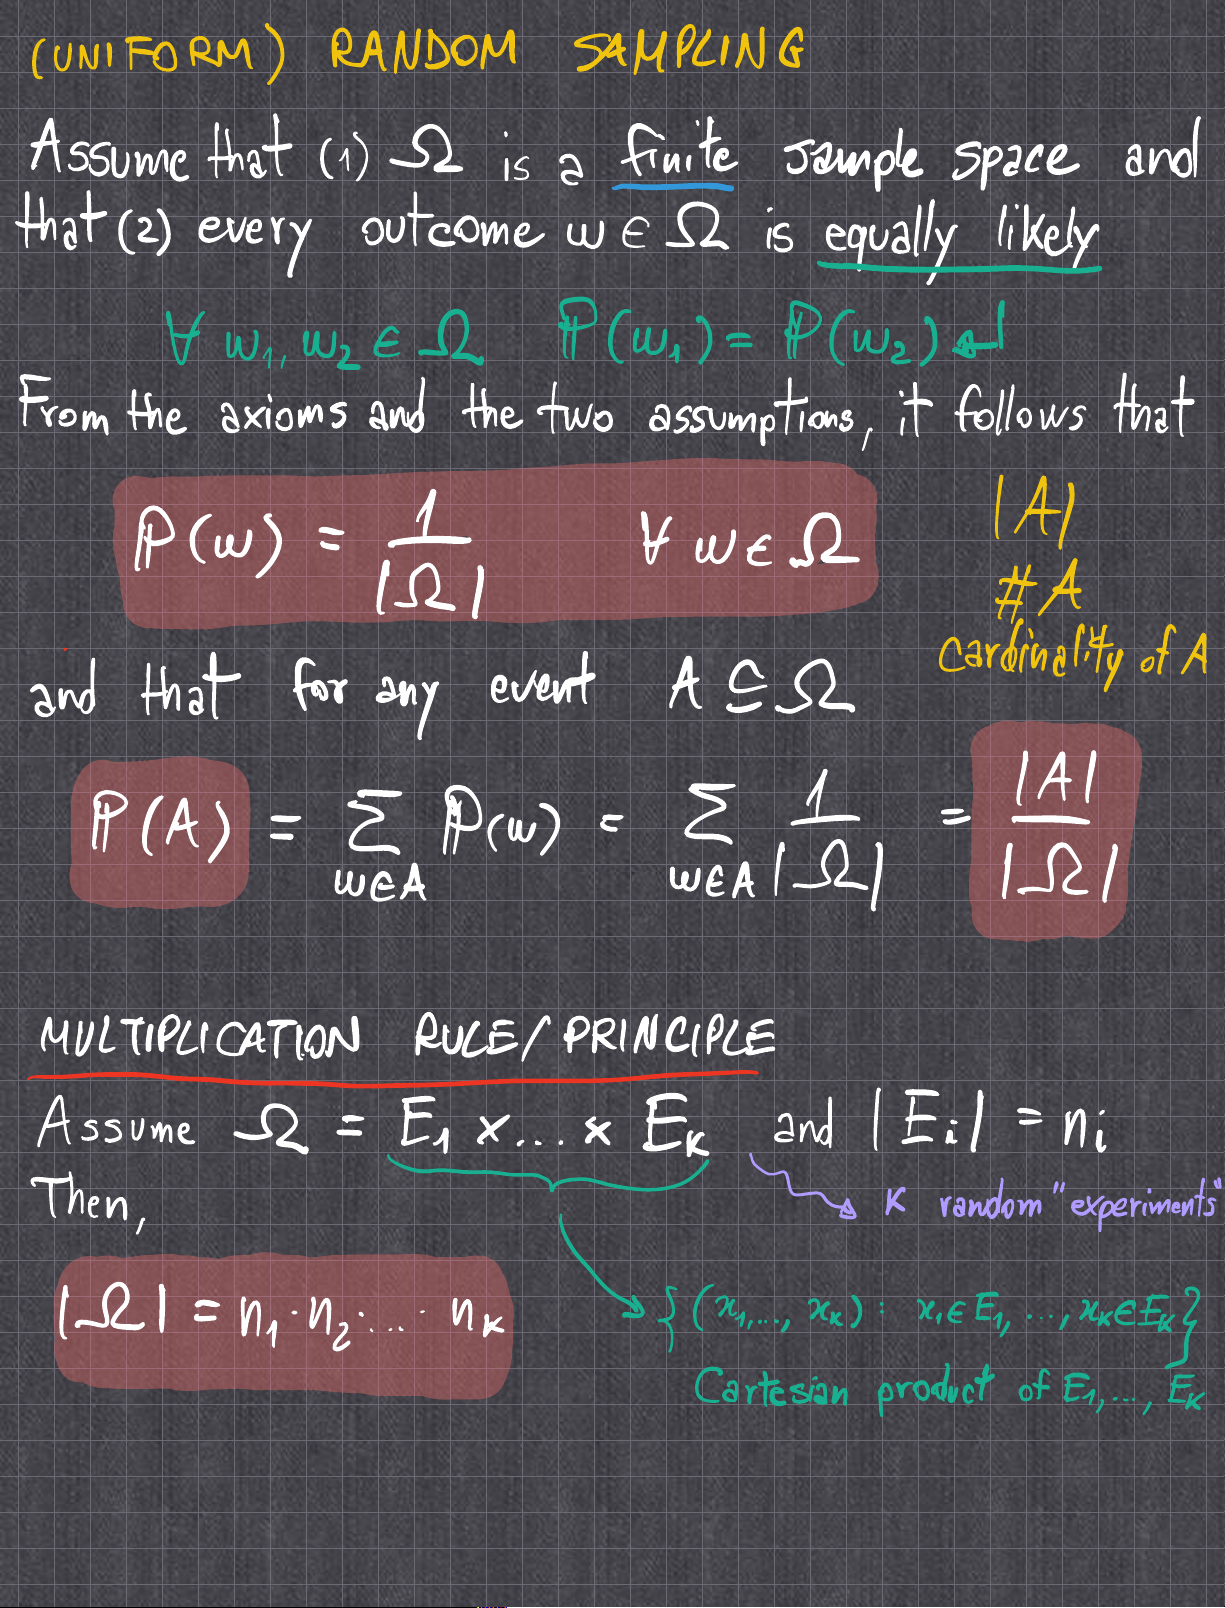 (UNIFORM) RANDOM SAMPLING
Assume that (1) Ω is a finite sample space and
that (2) every outcome ω ∈ Ω is equally likely
∀ ω₁, ω₂ ∈ Ω ℙ(ω₁) = ℙ(ω₂) ↲
From the axioms and the two assumptions, it follows that
ℙ(ω) = 1/|Ω| ∀ ω ∈ Ω
|A|
#A
cardinality of A
and that for any event A ⊆ Ω
ℙ(A) = ∑_{ω∈A} ℙ(ω) = ∑_{ω∈A} 1/|Ω| = |A|/|Ω|
MULTIPLICATION RULE/PRINCIPLE
Assume Ω = E₁ × ... × E_K and |E_i| = n_i
Then,
K random "experiments"
|Ω| = n₁ · n₂ · ... · n_K
{(x₁,..., x_K) : x₁ ∈ E₁, ..., x_K ∈ E_K}
Cartesian product of E₁, ..., E_K